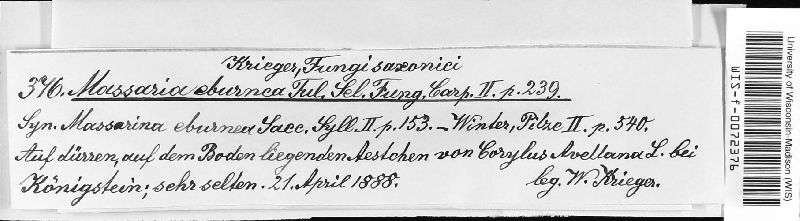 Krieger, Fungi saxonici
376. Massaria eburnea Tul. Sel. Fung. Carp. II. p. 239.
Syn. Massarina eburnea Sacc. Syll. II. p. 153. – Winter, Pilze II. p. 540.
Auf dürren, auf dem Boden liegenden Aestchen von Corylus Avellana L. bei
Königstein; sehr selten. 21. April 1888. leg. W. Krieger.
University of Wisconsin-Madison (WIS)
WIS-f-0072376